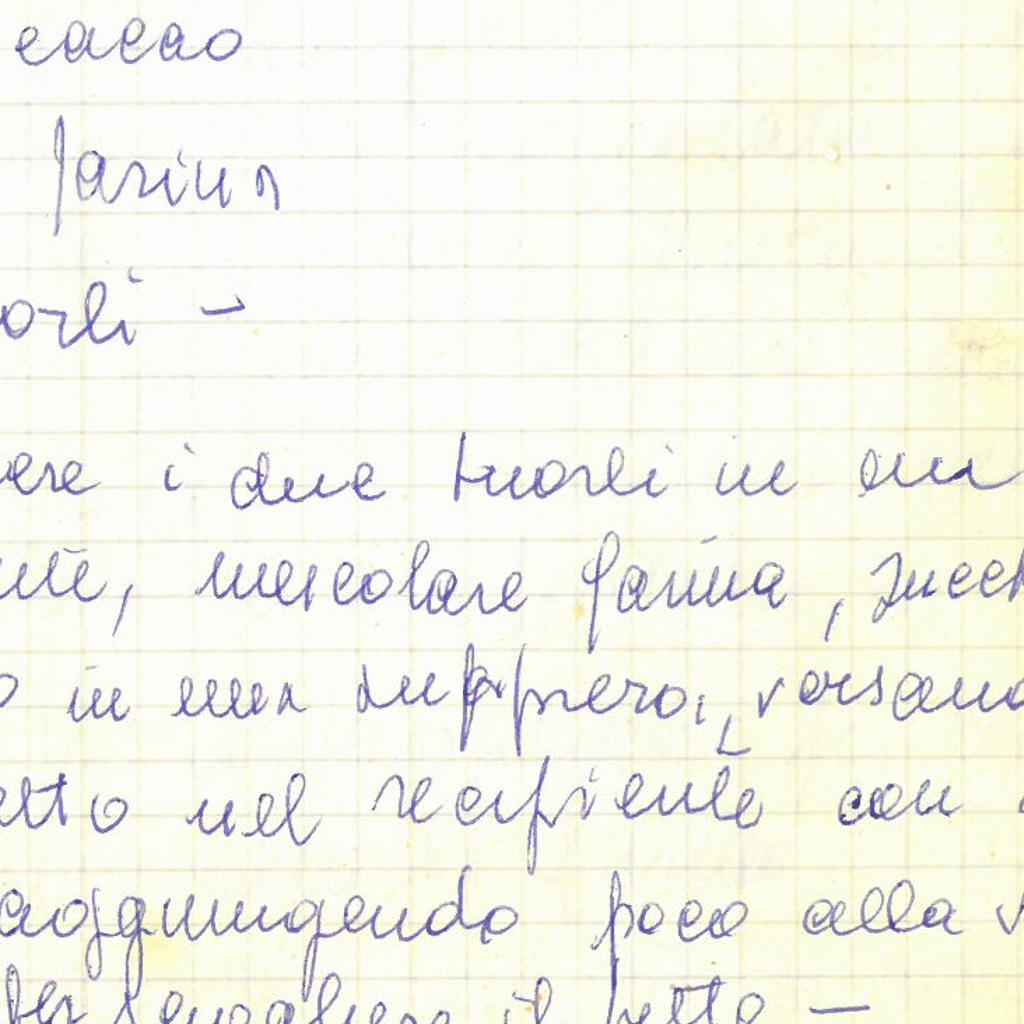 cacao
farina
orli -
ere i due tuorli in un
nte, mescolare farina, zucch
o in una zuppiera, versand
etto nel recipiente con
aggiungendo poco alla v
per sciogliere il tutto -